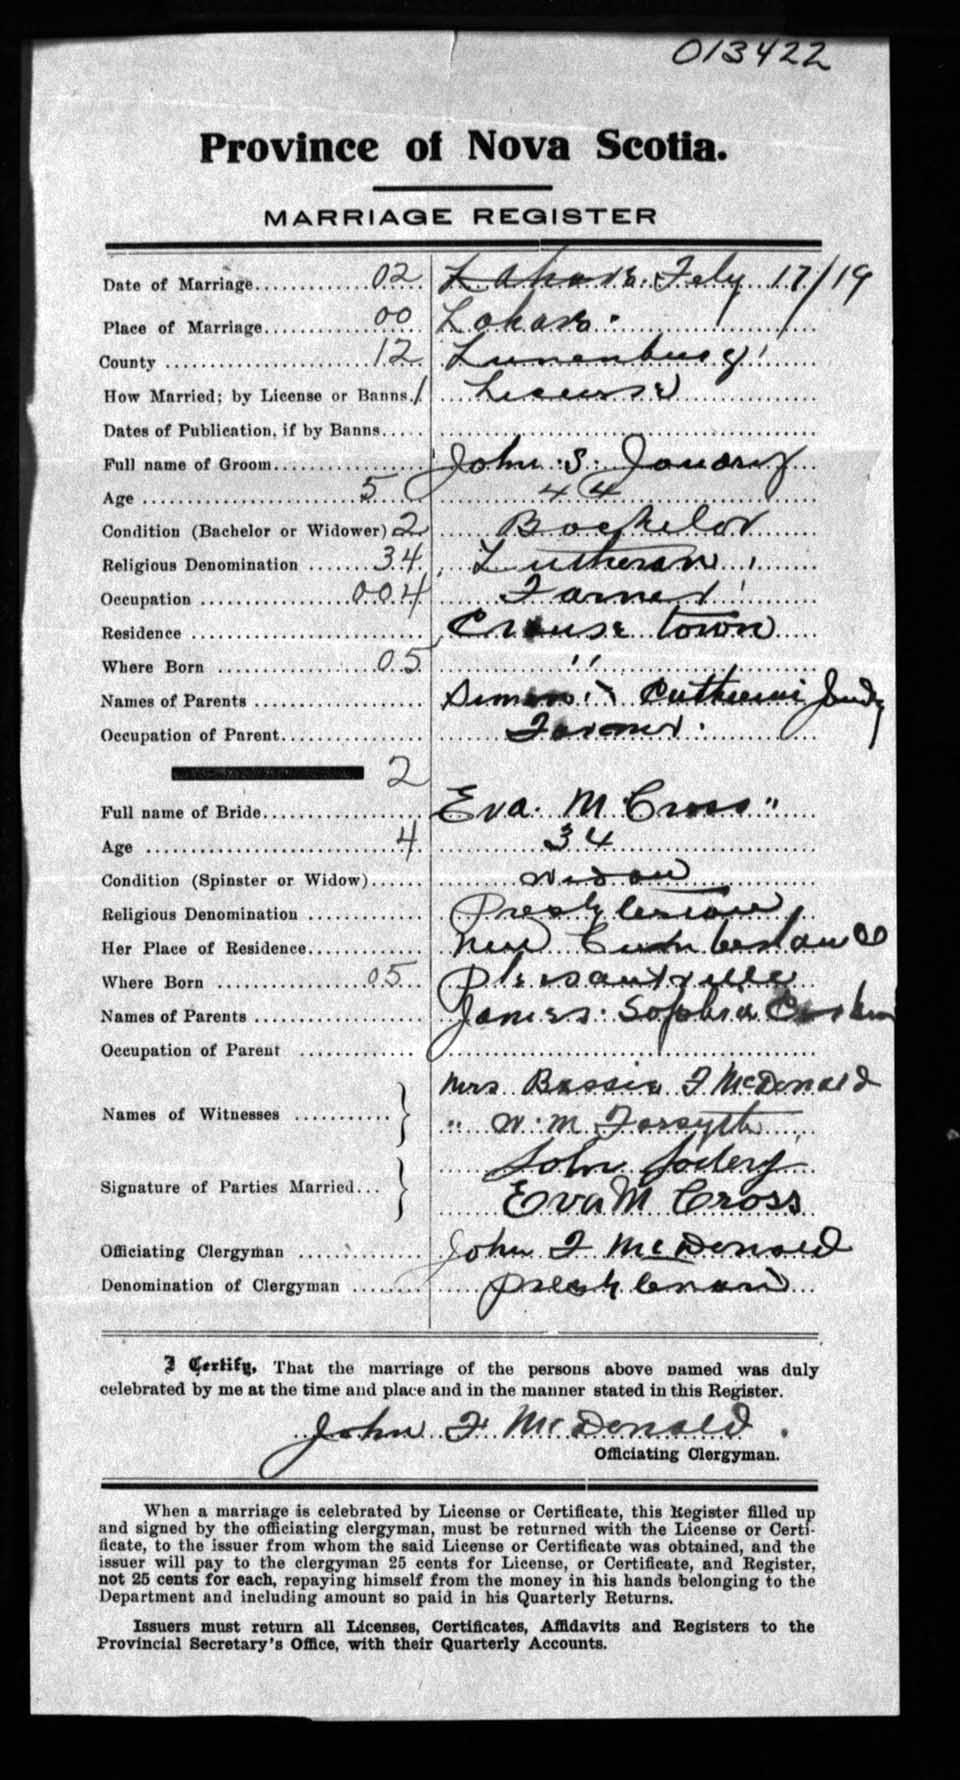 013422
Province of Nova Scotia.
MARRIAGE REGISTER
Date of Marriage 02 Feby 17/19
Place of Marriage 00 Lahave
County 12 Lunenburg
How Married; by License or Banns. 1 License
Dates of Publication, if by Banns
Full name of Groom John S.
Age 5 44
Condition (Bachelor or Widower) 2 Bachelor
Religious Denomination 34 Lutheran
Occupation 004 Farmer
Residence Crouse town
Where Born 05 "
Names of Parents Simon
Occupation of Parent Farmer
2
Full name of Bride Eva M Cross
Age 4 34
Condition (Spinster or Widow) widow
Religious Denomination Presbyterian
Her Place of Residence New Cumberland
Where Born 05 Plesantville
Names of Parents James Sophia
Occupation of Parent
Names of Witnesses Mrs Bessie F McDonald
" W. M Forsyth
Signature of Parties Married John
Eva M Cross
Officiating Clergyman John F McDonald
Denomination of Clergyman Presbyterian
I Certify, That the marriage of the persons above named was duly
celebrated by me at the time and place and in the manner stated in this Register.
John F McDonald
Officiating Clergyman.
When a marriage is celebrated by License or Certificate, this Register filled up
and signed by the officiating clergyman, must be returned with the License or Certi-
ficate, to the issuer from whom the said License or Certificate was obtained, and the
issuer will pay to the clergyman 25 cents for License, or Certificate, and Register,
not 25 cents for each, repaying himself from the money in his hands belonging to the
Department and including amount so paid in his Quarterly Returns.
Issuers must return all Licenses, Certificates, Affidavits and Registers to the
Provincial Secretary's Office, with their Quarterly Accounts.